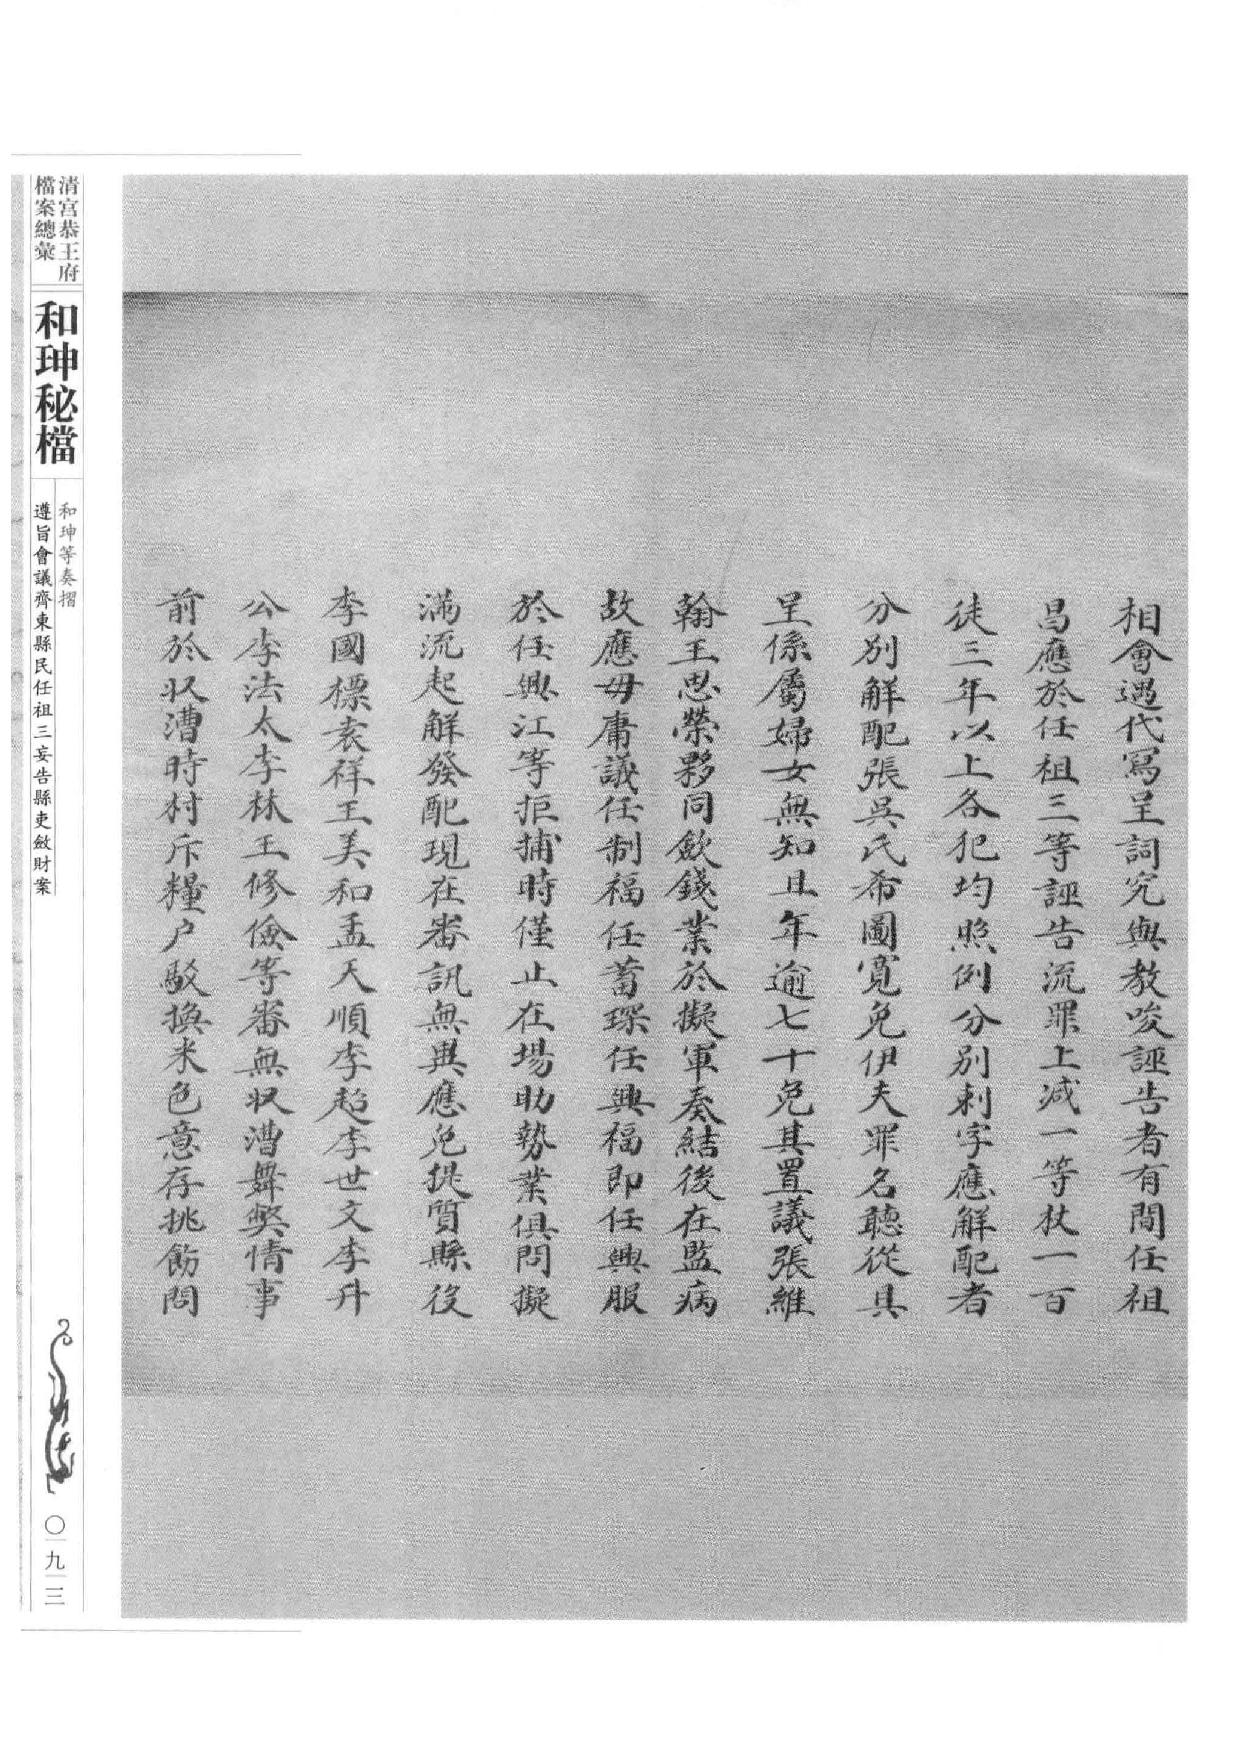 相會遇代寫呈詞究與教唆誣告者有間任祖
昌應於任祖三等誣告流罪上减一等杖一百
徒三年以上各犯均照例分别刺字應解配者
分别解配張吳氏希圖寬免伊夫罪名聽從具
呈係屬婦女無知且年逾七十免其置議張維
翰王思榮夥同歛錢業於擬軍奏結後在監病
故應毋庸議任制福任蓄琛任興福即任興服
於任興江等拒捕時僅止在場助勢業俱問擬
滿流起解發配現在審訊無異應免提質縣役
李國標袁祥王美和孟天順李超李世文李升
公李法太李林王修儉等審無収漕舞獘情事
前於収漕時村斥糧户駁換米色意存挑飭問
清宫恭王府
檔案總彙
和珅秘檔
和珅等奏摺
遵旨會議齊東縣民任祖三妄告縣吏斂財案
〇九三